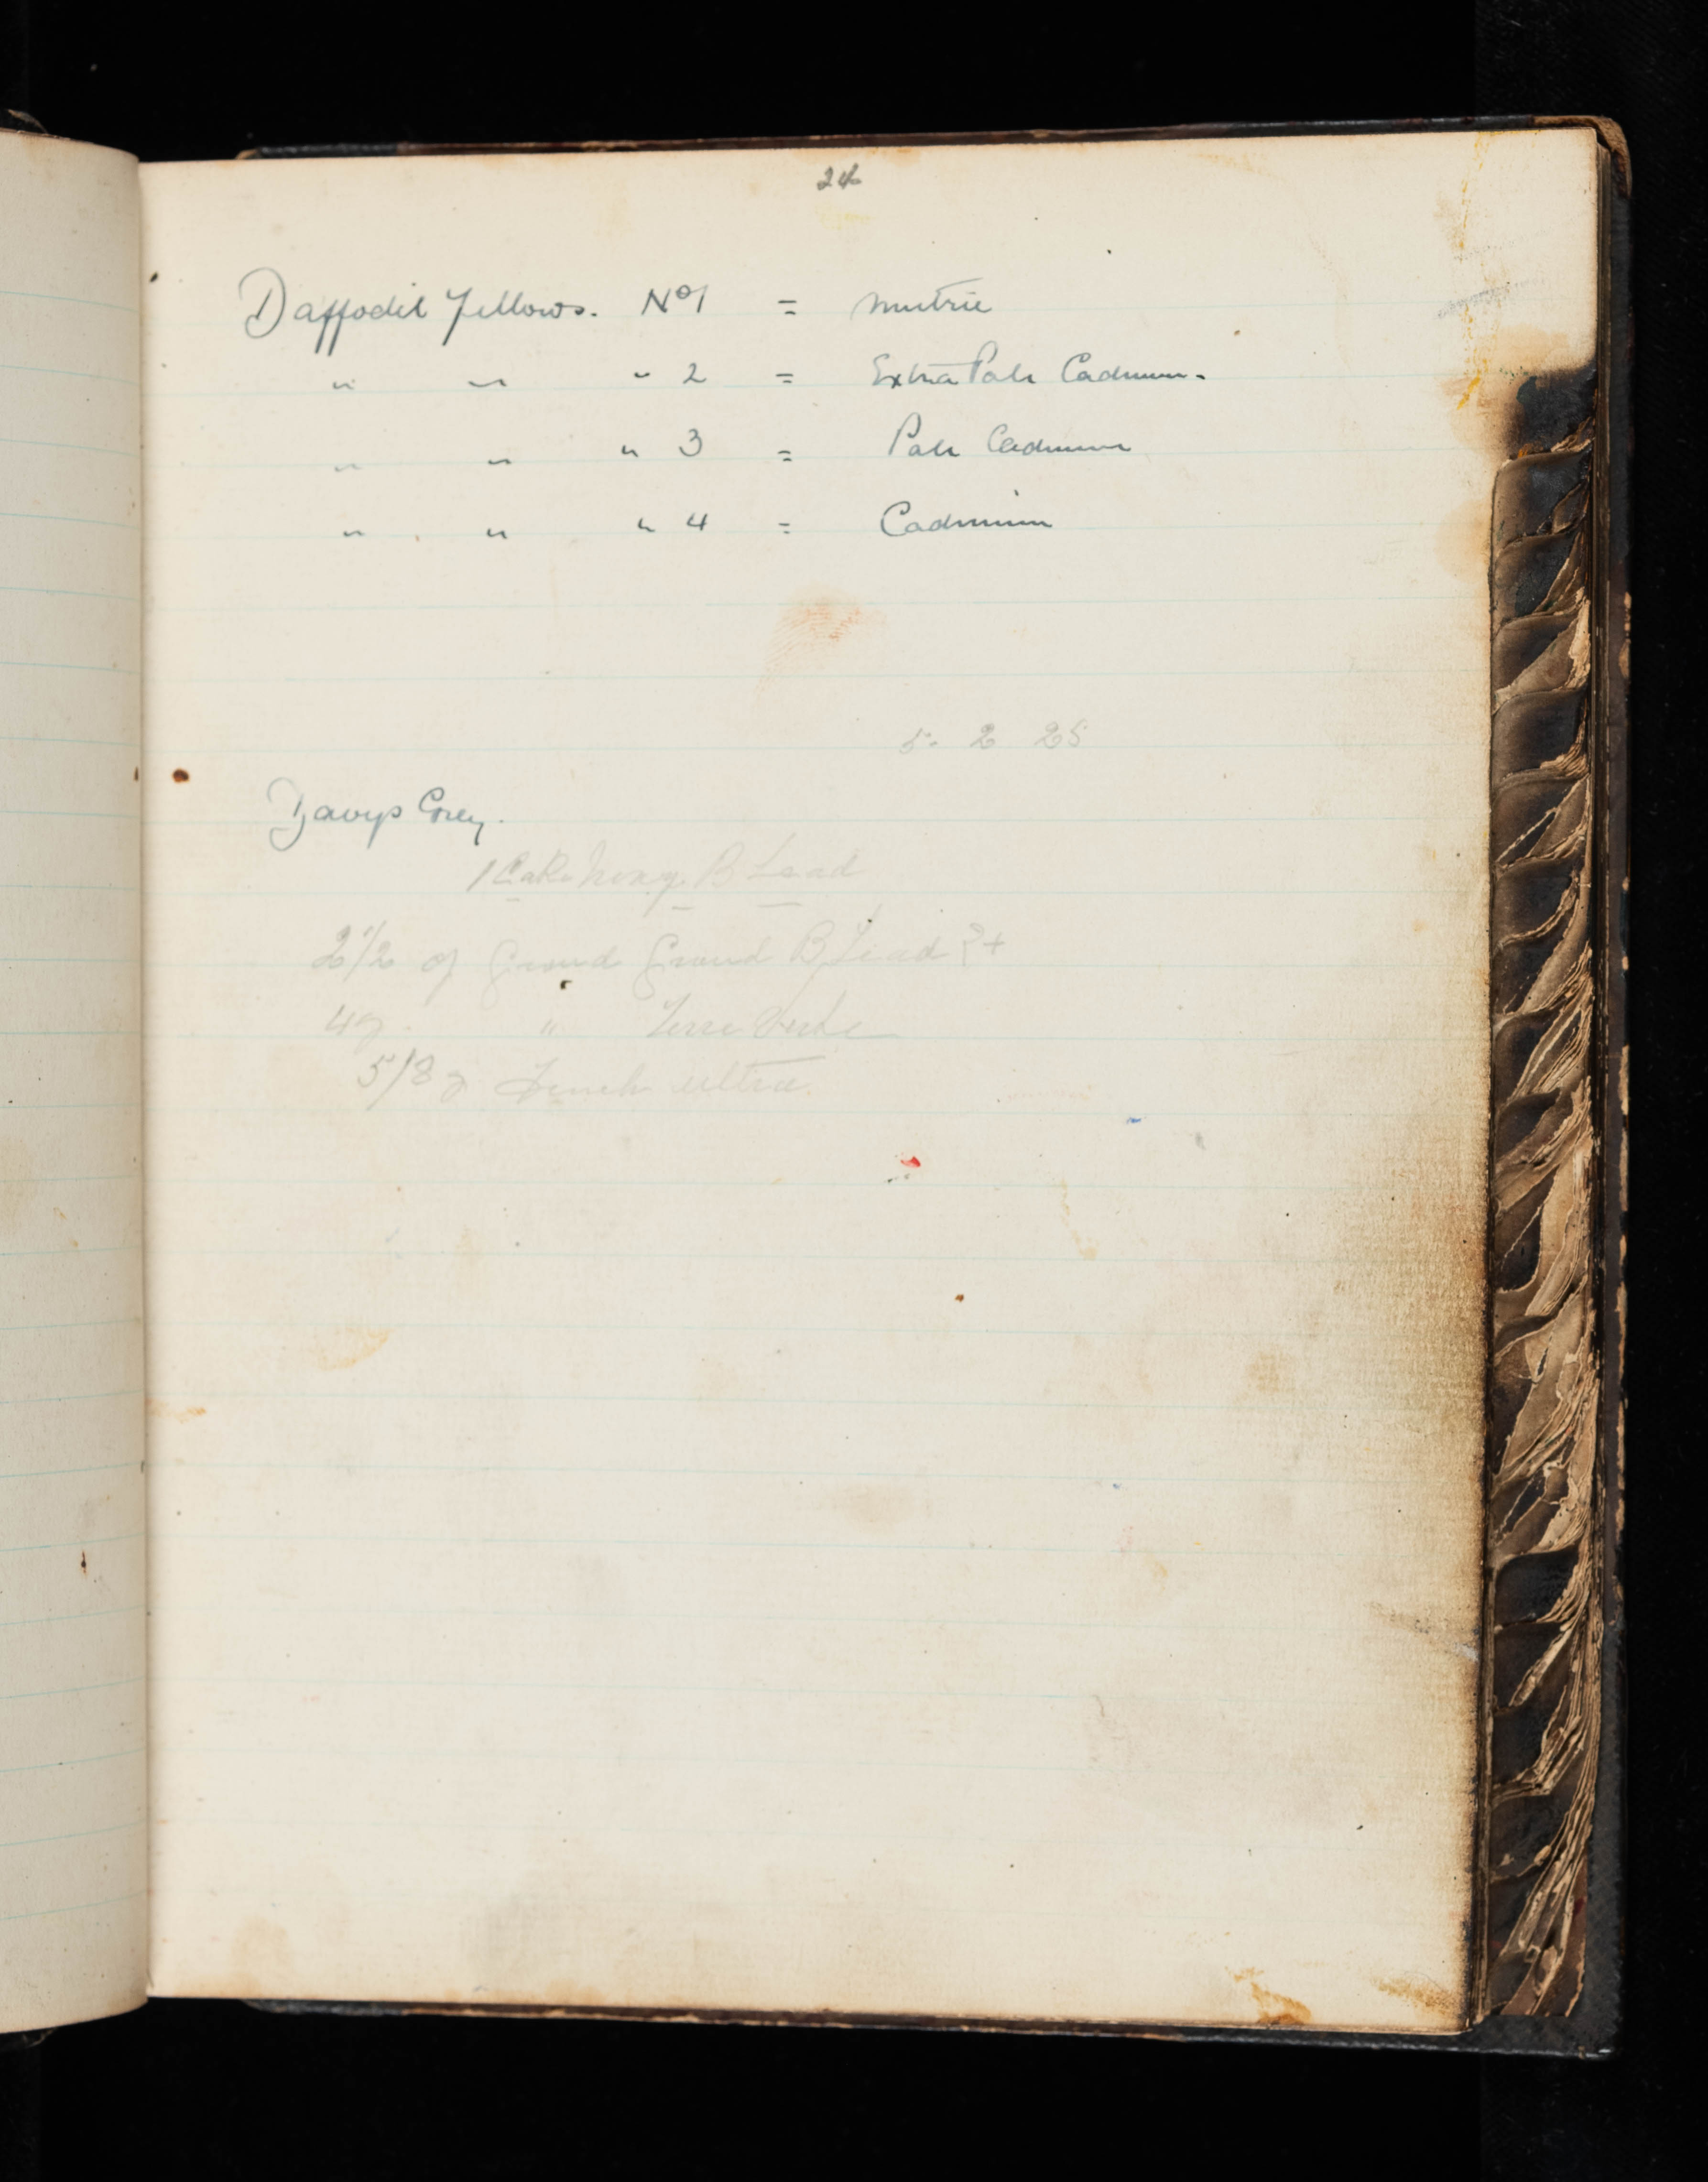 24
Daffodil Yellows. No 1 = Mutrie
" " " 2 = Extra Pale Cadmium.
" " " 3 = Pale Cadmium
" " " 4 = Cadmium
5. 2 25
Davys Grey.
1 Cake B Lead
2 1/2 of Ground Ground B Lead
4 " Terre Verte
5/8 French Ultra